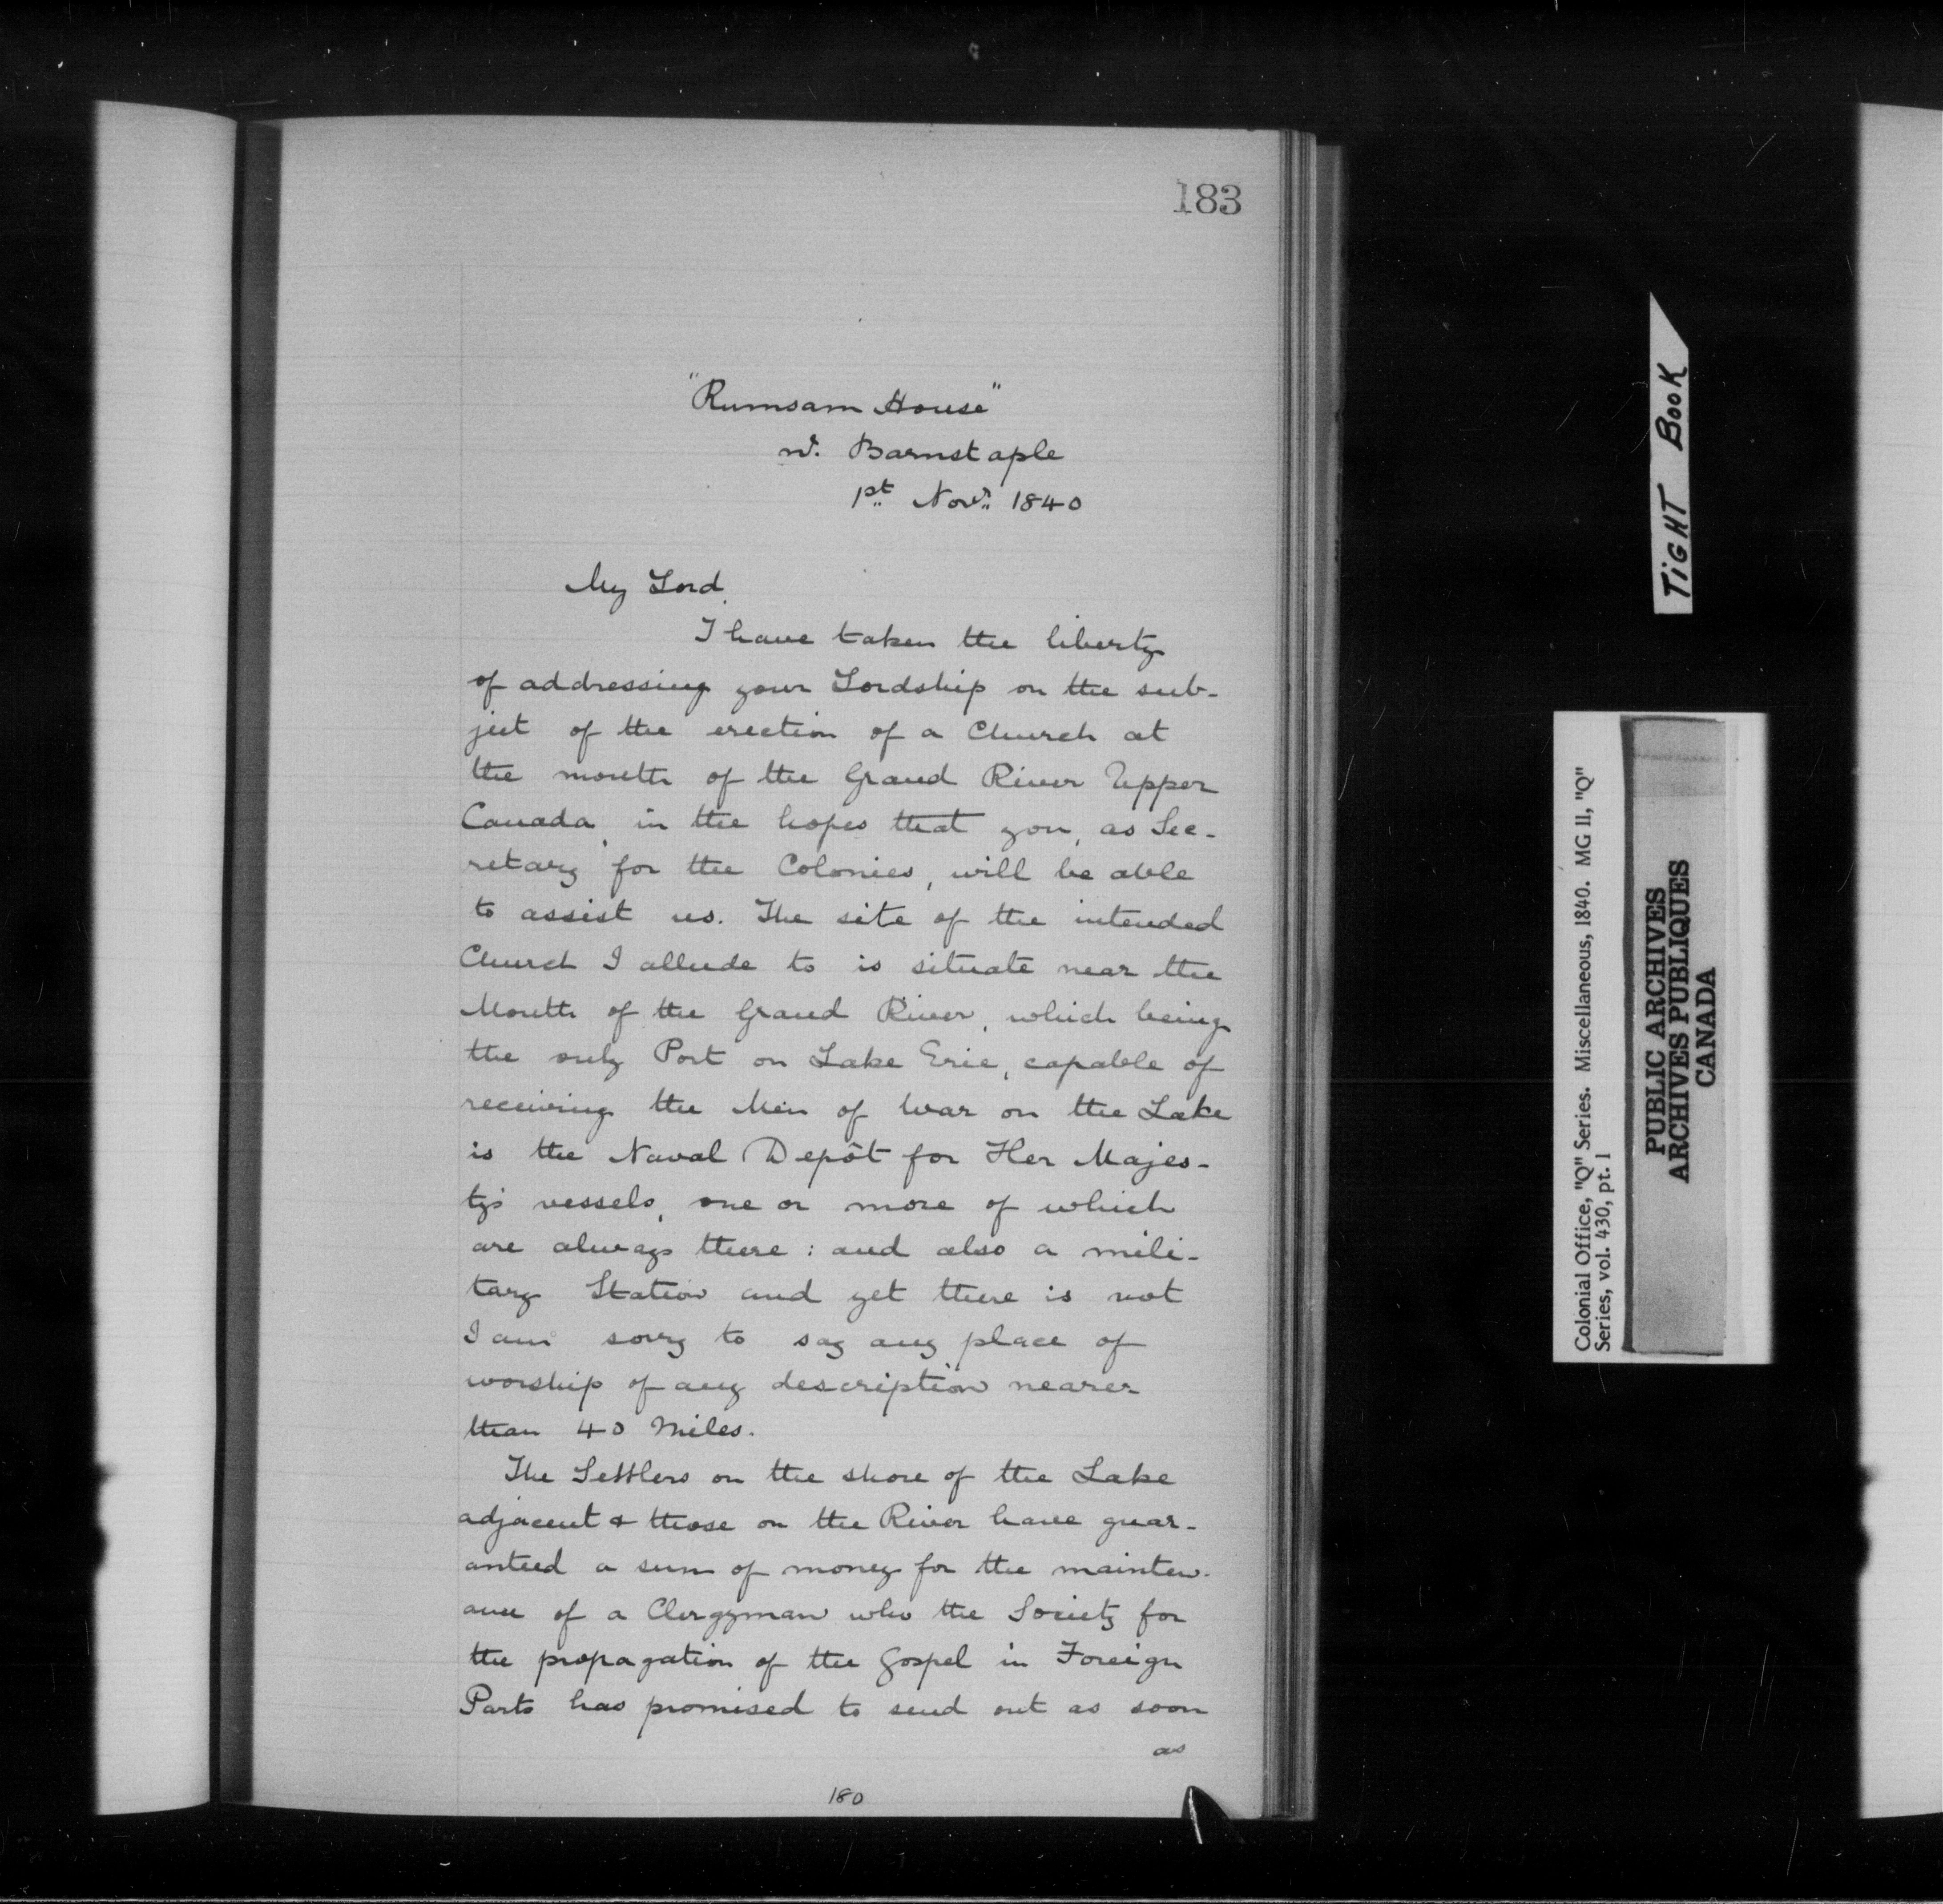 183
"Rumsam House"
nr. Barnstaple
1st Novr. 1840
My Lord,
I have taken the liberty
of addressing your Lordship on the sub-
ject of the erection of a Church at
the mouth of the Grand River Upper
Canada, in the hopes that you, as Sec-
retary for the Colonies, will be able
to assist us. The site of the intended
Church I allude to is situate near the
Mouth of the Grand River, which being
the only Port on Lake Erie, capable of
receiving the Men of War on the Lake
is the Naval Depôt for Her Majes-
ty's vessels, one or more of which
are always there: and also a mili-
tary Station and yet there is not
I am sorry to say any place of
worship of any description nearer
than 40 Miles.
The Settlers on the shore of the Lake
adjacent & those on the River have guar-
anteed a sum of money for the mainten-
ance of a Clergyman who the Society for
the propagation of the Gospel in Foreign
Parts has promised to send out as soon
as
180
TiGHT BooK
Colonial Office, "Q" Series. Miscellaneous, 1840. MG 11, "Q"
Series, vol. 430, pt. 1
PUBLIC ARCHIVES
ARCHIVES PUBLIQUES
CANADA